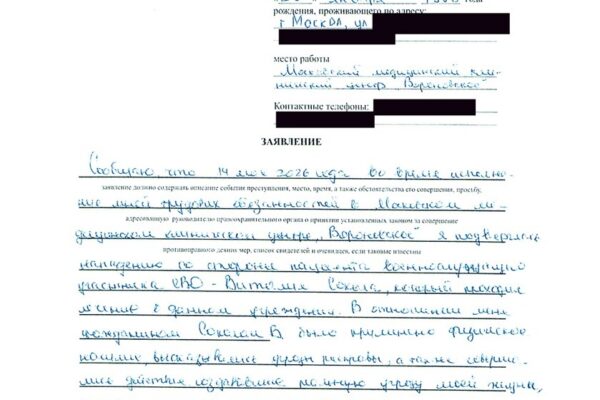 января
рождения, проживающего по адресу:
г Москва, ул
место работы
Московский медицинский кли-
нический центр „Вороновское"
Контактные телефоны:
ЗАЯВЛЕНИЕ
Сообщаю, что 14 мая 2026 года во время исполне-
заявление должно содержать описание события преступления, место, время, а также обстоятельства его совершения, просьбу,
ние мной трудовых обязанностей в Московском ме-
адресованную руководителю правоохранительного органа о принятии установленных законом за совершение
дицинском клиническом центре „Вороновское" я подверглась
противоправного деяния мер, список свидетелей и очевидцев, если таковые известны
нападению со стороны пациента военнослужащего
участника СВО - Виталия Сокола, который проходил
лечение в данном учреждении. В отношении меня
гражданином Соколом В. было применено физическое
насилие, высказывались угрозы расправы, а также соверши-
лись действия создававшие реальную угрозу моей жизни,